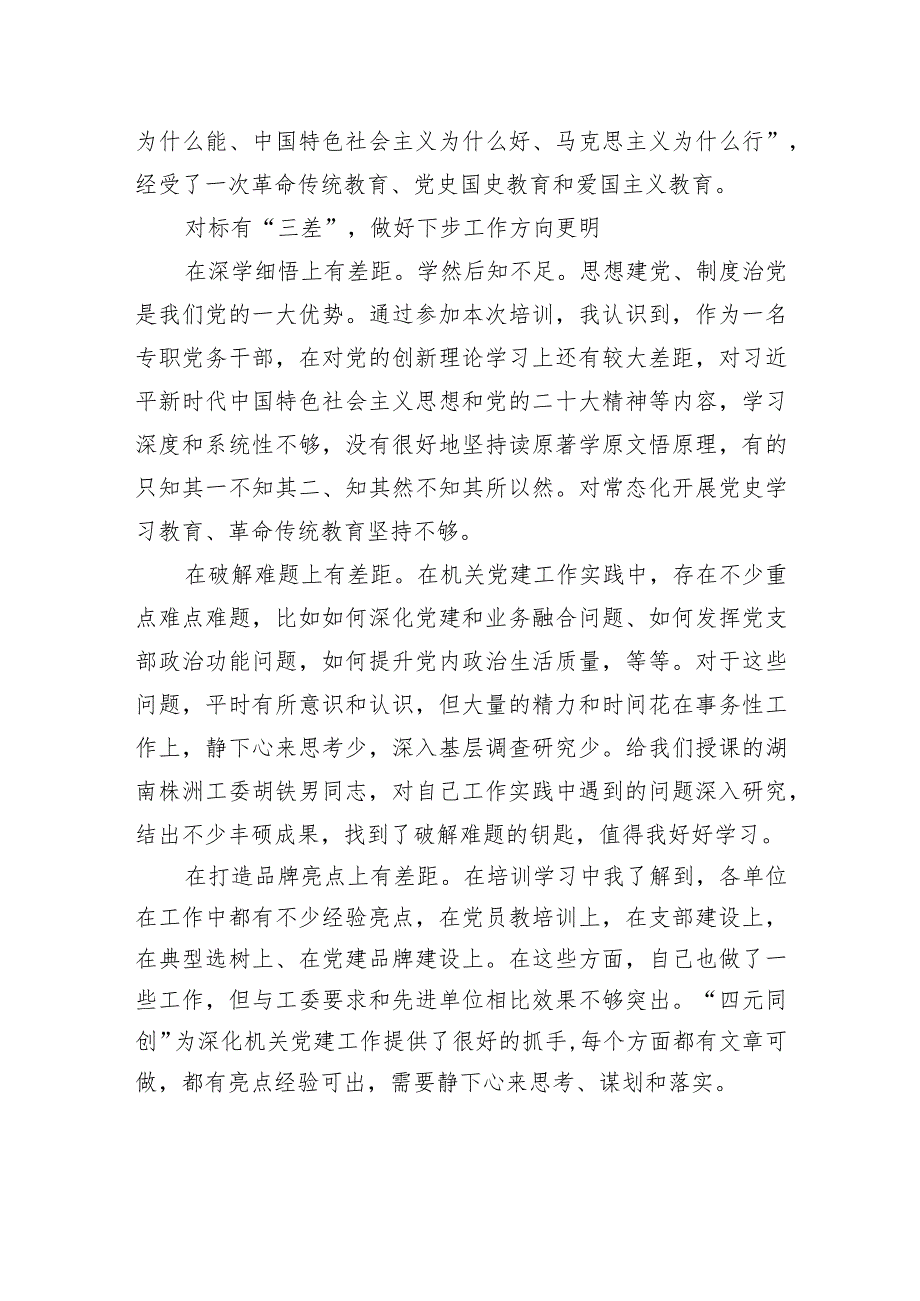 为什么能、中国特色社会主义为什么好、马克思主义为什么行”，
经受了一次革命传统教育、党史国史教育和爱国主义教育。
对标有“三差”，做好下步工作方向更明
在深学细悟上有差距。学然后知不足。思想建党、制度治党
是我们党的一大优势。通过参加本次培训，我认识到，作为一名
专职党务干部，在对党的创新理论学习上还有较大差距，对习近
平新时代中国特色社会主义思想和党的二十大精神等内容，学习
深度和系统性不够，没有很好地坚持读原著学原文悟原理，有的
只知其一不知其二、知其然不知其所以然。对常态化开展党史学
习教育、革命传统教育坚持不够。
在破解难题上有差距。在机关党建工作实践中，存在不少重
点难点难题，比如如何深化党建和业务融合问题、如何发挥党支
部政治功能问题，如何提升党内政治生活质量，等等。对于这些
问题，平时有所意识和认识，但大量的精力和时间花在事务性工
作上，静下心来思考少，深入基层调查研究少。给我们授课的湖
南株洲工委胡铁男同志，对自己工作实践中遇到的问题深入研究，
结出不少丰硕成果，找到了破解难题的钥匙，值得我好好学习。
在打造品牌亮点上有差距。在培训学习中我了解到，各单位
在工作中都有不少经验亮点，在党员教培训上，在支部建设上，
在典型选树上、在党建品牌建设上。在这些方面，自己也做了一
些工作，但与工委要求和先进单位相比效果不够突出。“四元同
创”为深化机关党建工作提供了很好的抓手,每个方面都有文章可
做，都有亮点经验可出，需要静下心来思考、谋划和落实。